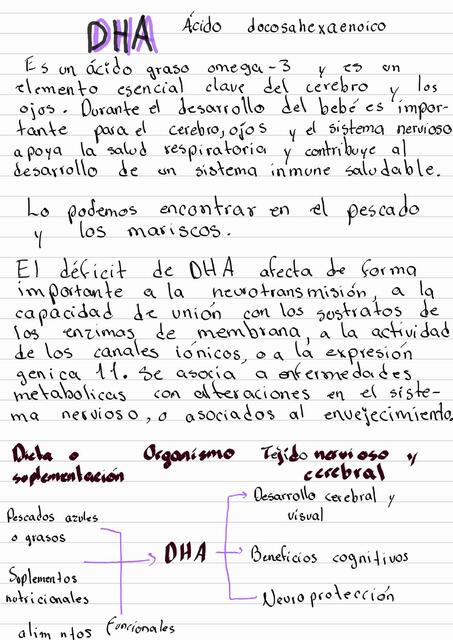 DHA Ácido docosahexaenoico
Es un ácido graso omega-3 y es un
elemento esencial clave del cerebro y los
ojos. Durante el desarrollo del bebé es impor-
tante para el cerebro, ojos y el sistema nervioso
apoya la salud respiratoria y contribuye al
desarrollo de un sistema inmune saludable.
Lo podemos encontrar en el pescado
y los mariscos.
El déficit de DHA afecta de forma
importante a la neurotransmisión, a la
capacidad de unión con los sustratos de
los enzimas de membrana, a la actividad
de los canales iónicos, o a la expresión
genica 11. Se asocia a enfermedades
metabolicas con alteraciones en el siste-
ma nervioso, o asociados al envejecimiento.
Dieta o Organismo Tejido nervioso y
suplementación cerebral
Desarrollo cerebral y
visual
Pescados azules
o grasos
DHA Beneficios cognitivos
Suplementos
nutricionales
Neuroprotección
alim ntos Funcionales